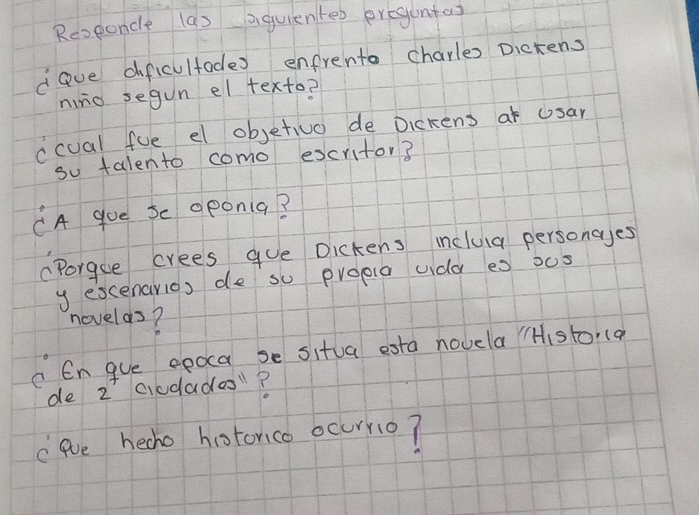 Responde las siguientes preguntas
¿Que dificultades enfrento Charles Dickens
niño segun el texto?
¿cual fue el objetivo de Dickens al usar
su talento como escritor?
¿A que se oponia?
¿Porque crees que Dickens incluia personajes
y escenarios de su propia vida es sus
novelas?
¿En que epoca se situa esta novela "Historia
de 2 ciudades"?
¿Que hecho historico ocurrio?